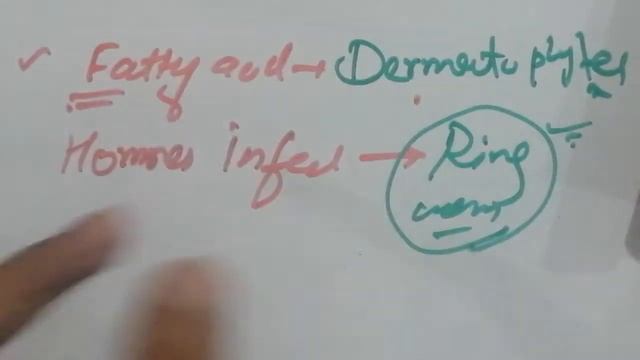 ✓ Fatty acid → Dermatophytes
Hormones infect → Ring
worm